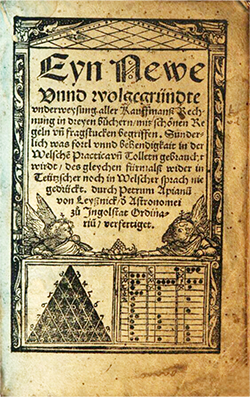 Eyn Newe
Vnnd wolgegründte
vnderweysung aller Kauffmanß Rech-
nung in dreyen büchern/ mit schönen Re-
geln vñ fragstucken begriffen. Sunder-
lich was fortl vnnd behendigkait in der
Welschẽ Practica vñ Tolletn gebraucht
wirdt/ des gleychen fürmalß wider in
Teützscher noch in Welscher sprach nie
gedrückt. durch Petrum Apianũ
von Leyßnick/ d Astronomei
zů Ingolstat Ordina-
riũ/ verfertiget.